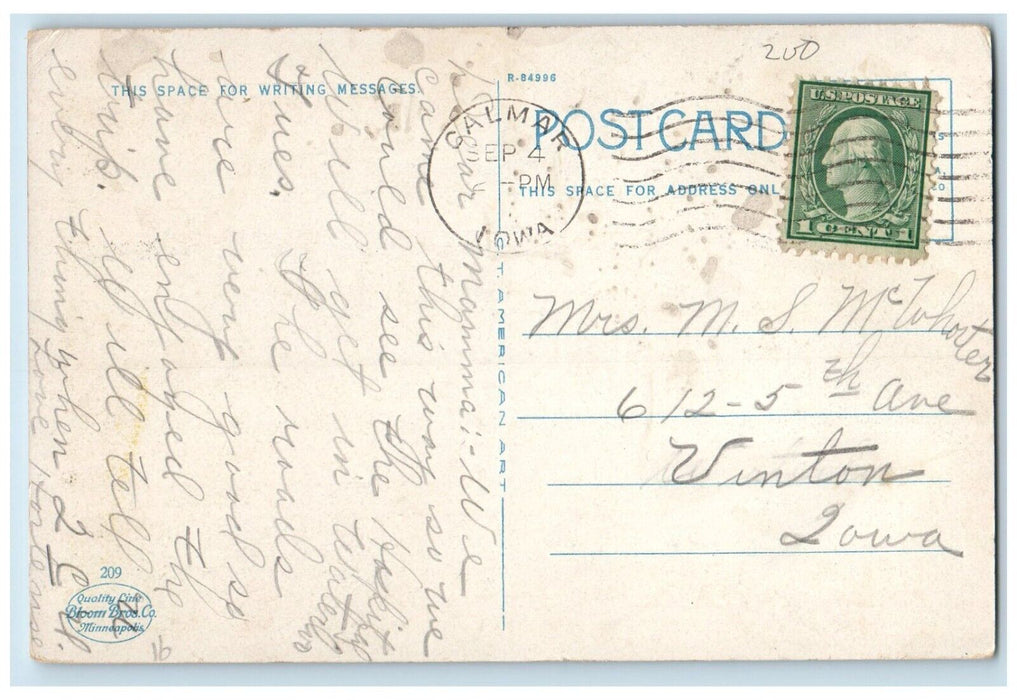 200
R-84996
THIS SPACE FOR WRITING MESSAGES.
POST CARD
THIS SPACE FOR ADDRESS ONL
CALMAR
SEP 4
PM
IOWA
U.S. POSTAGE
1 CENT 1
C. T. AMERICAN ART
Dear Mamma:- We
came this way so we
could see the
Will get in
Tues. The roads
are very good so
have enjoyed the
trip. I'll tell
every thing when I
Love, Hortense
Mrs. M. S. McWhorter
612-5th Ave
Vinton
Iowa
209
Quality Line
Bloom Bros. Co.
Minneapolis